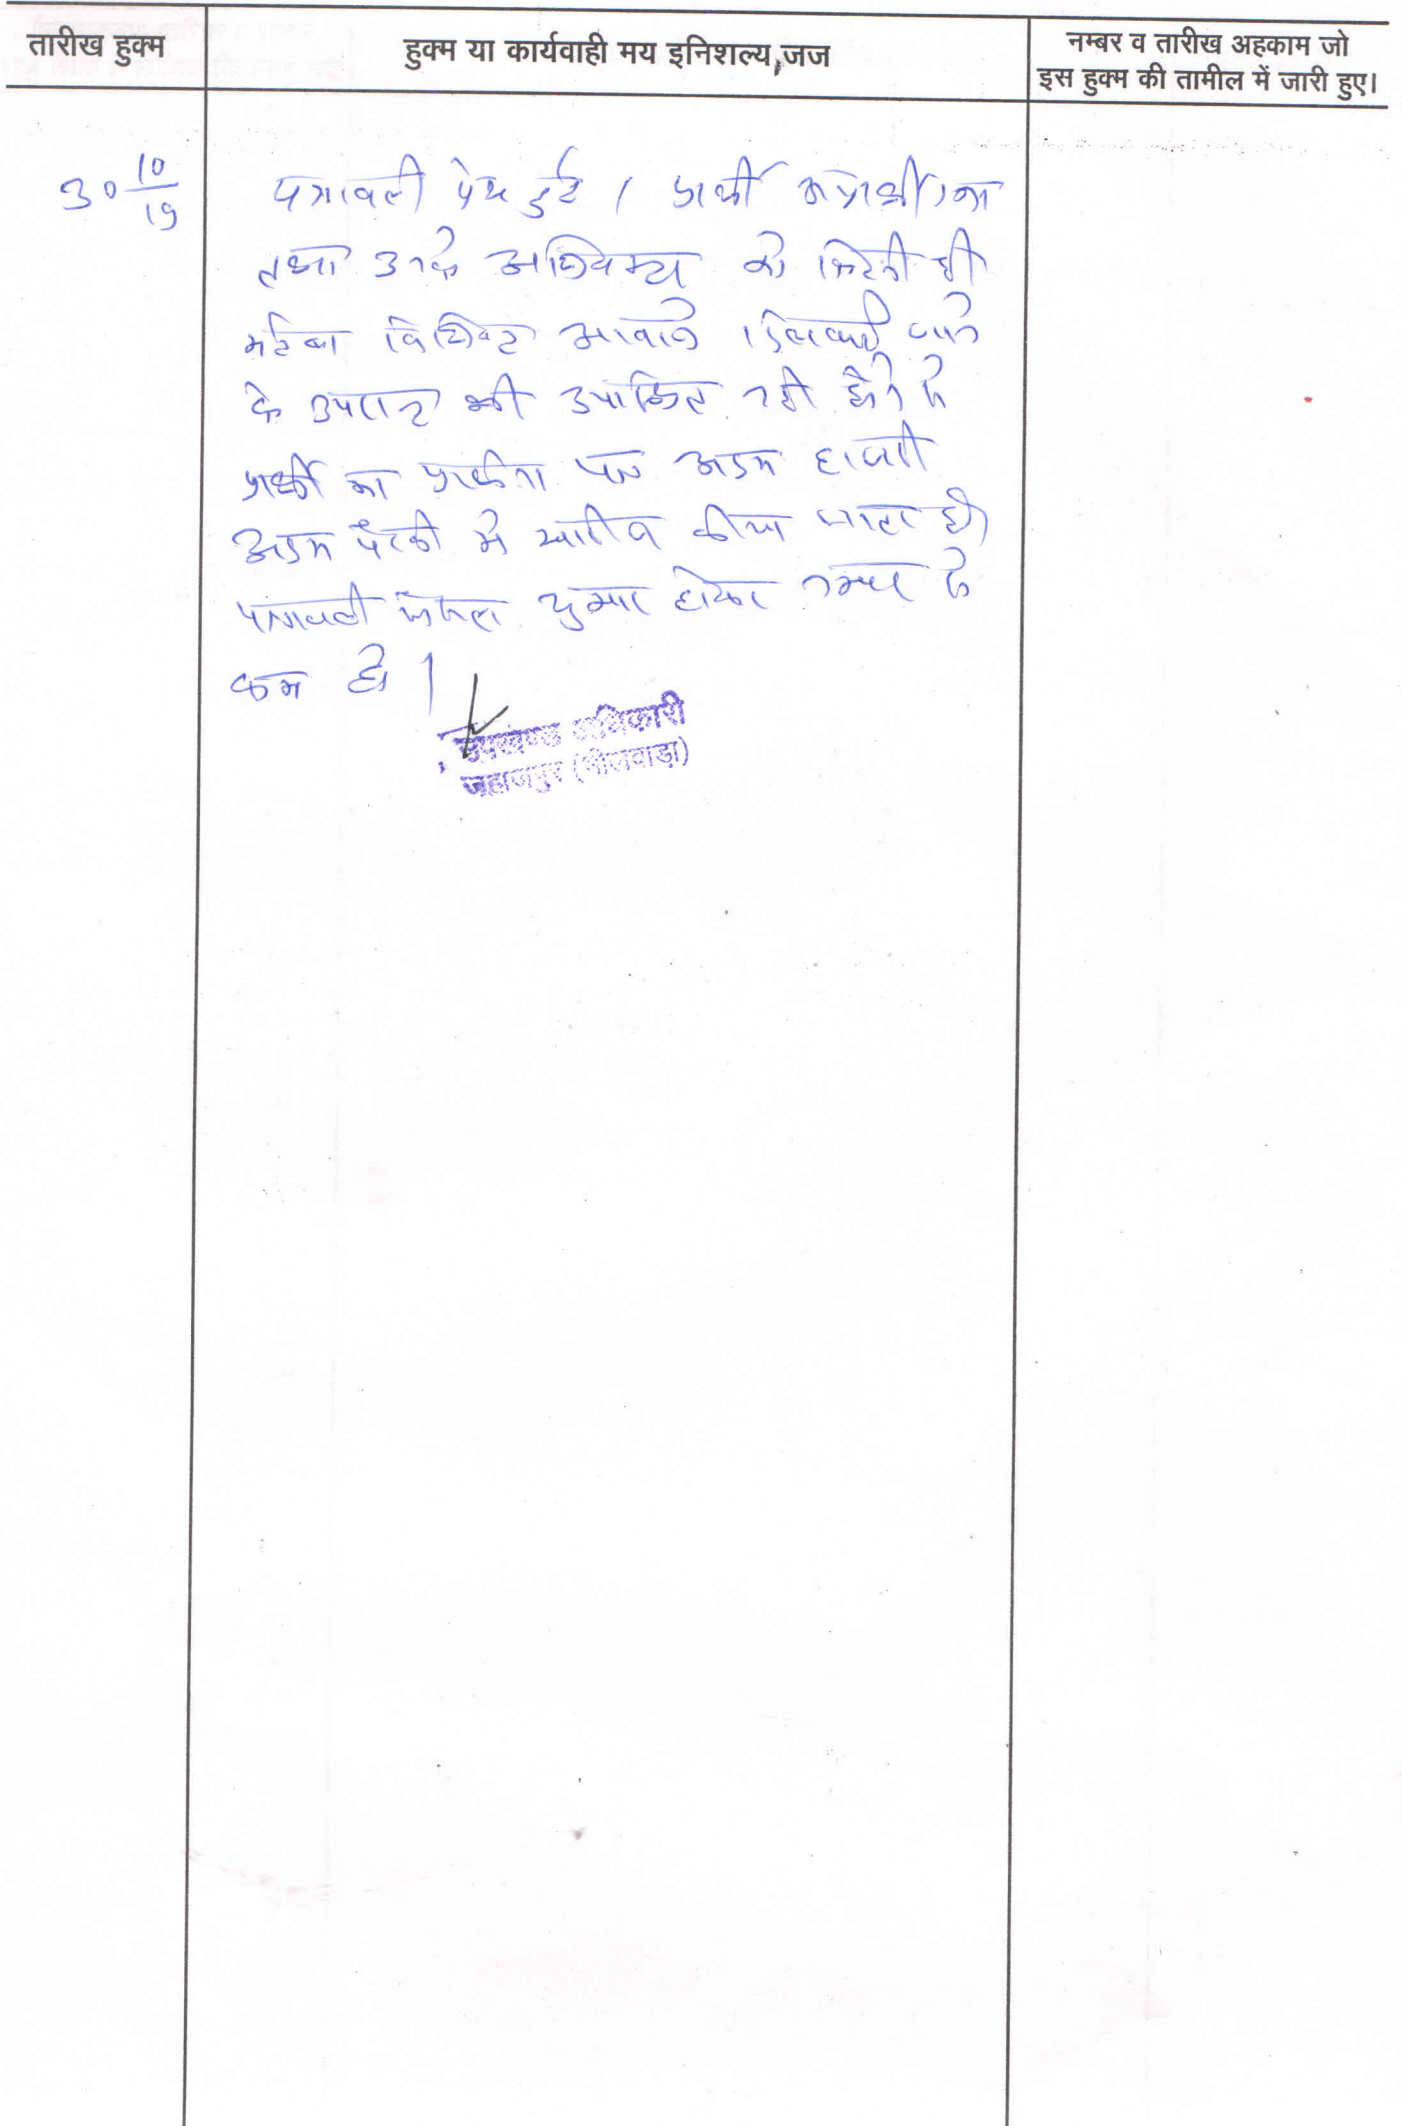 तारीख हुक्म
हुक्म या कार्यवाही मय इनिशल्य, जज
नम्बर व तारीख अहकाम जो
इस हुक्म की तामील में जारी हुए।
30 10/19
पत्रावली पेश हुई। प्रार्थी अप्रार्थी
तथा उनके को कितनी ही
मर्तबा आवाजे दिलवाई जाने
के उपरान्त भी उपस्थित नही होने से
प्रार्थी का प्रार्थना पत्र अदम हाजरी
अदम पैरवी मे खारीज कीया जाता है।
पत्रावली फैसल शुमार होकर नम्बर से
कम हो।
उपखण्ड अधिकारी
जहाजपुर (भीलवाड़ा)